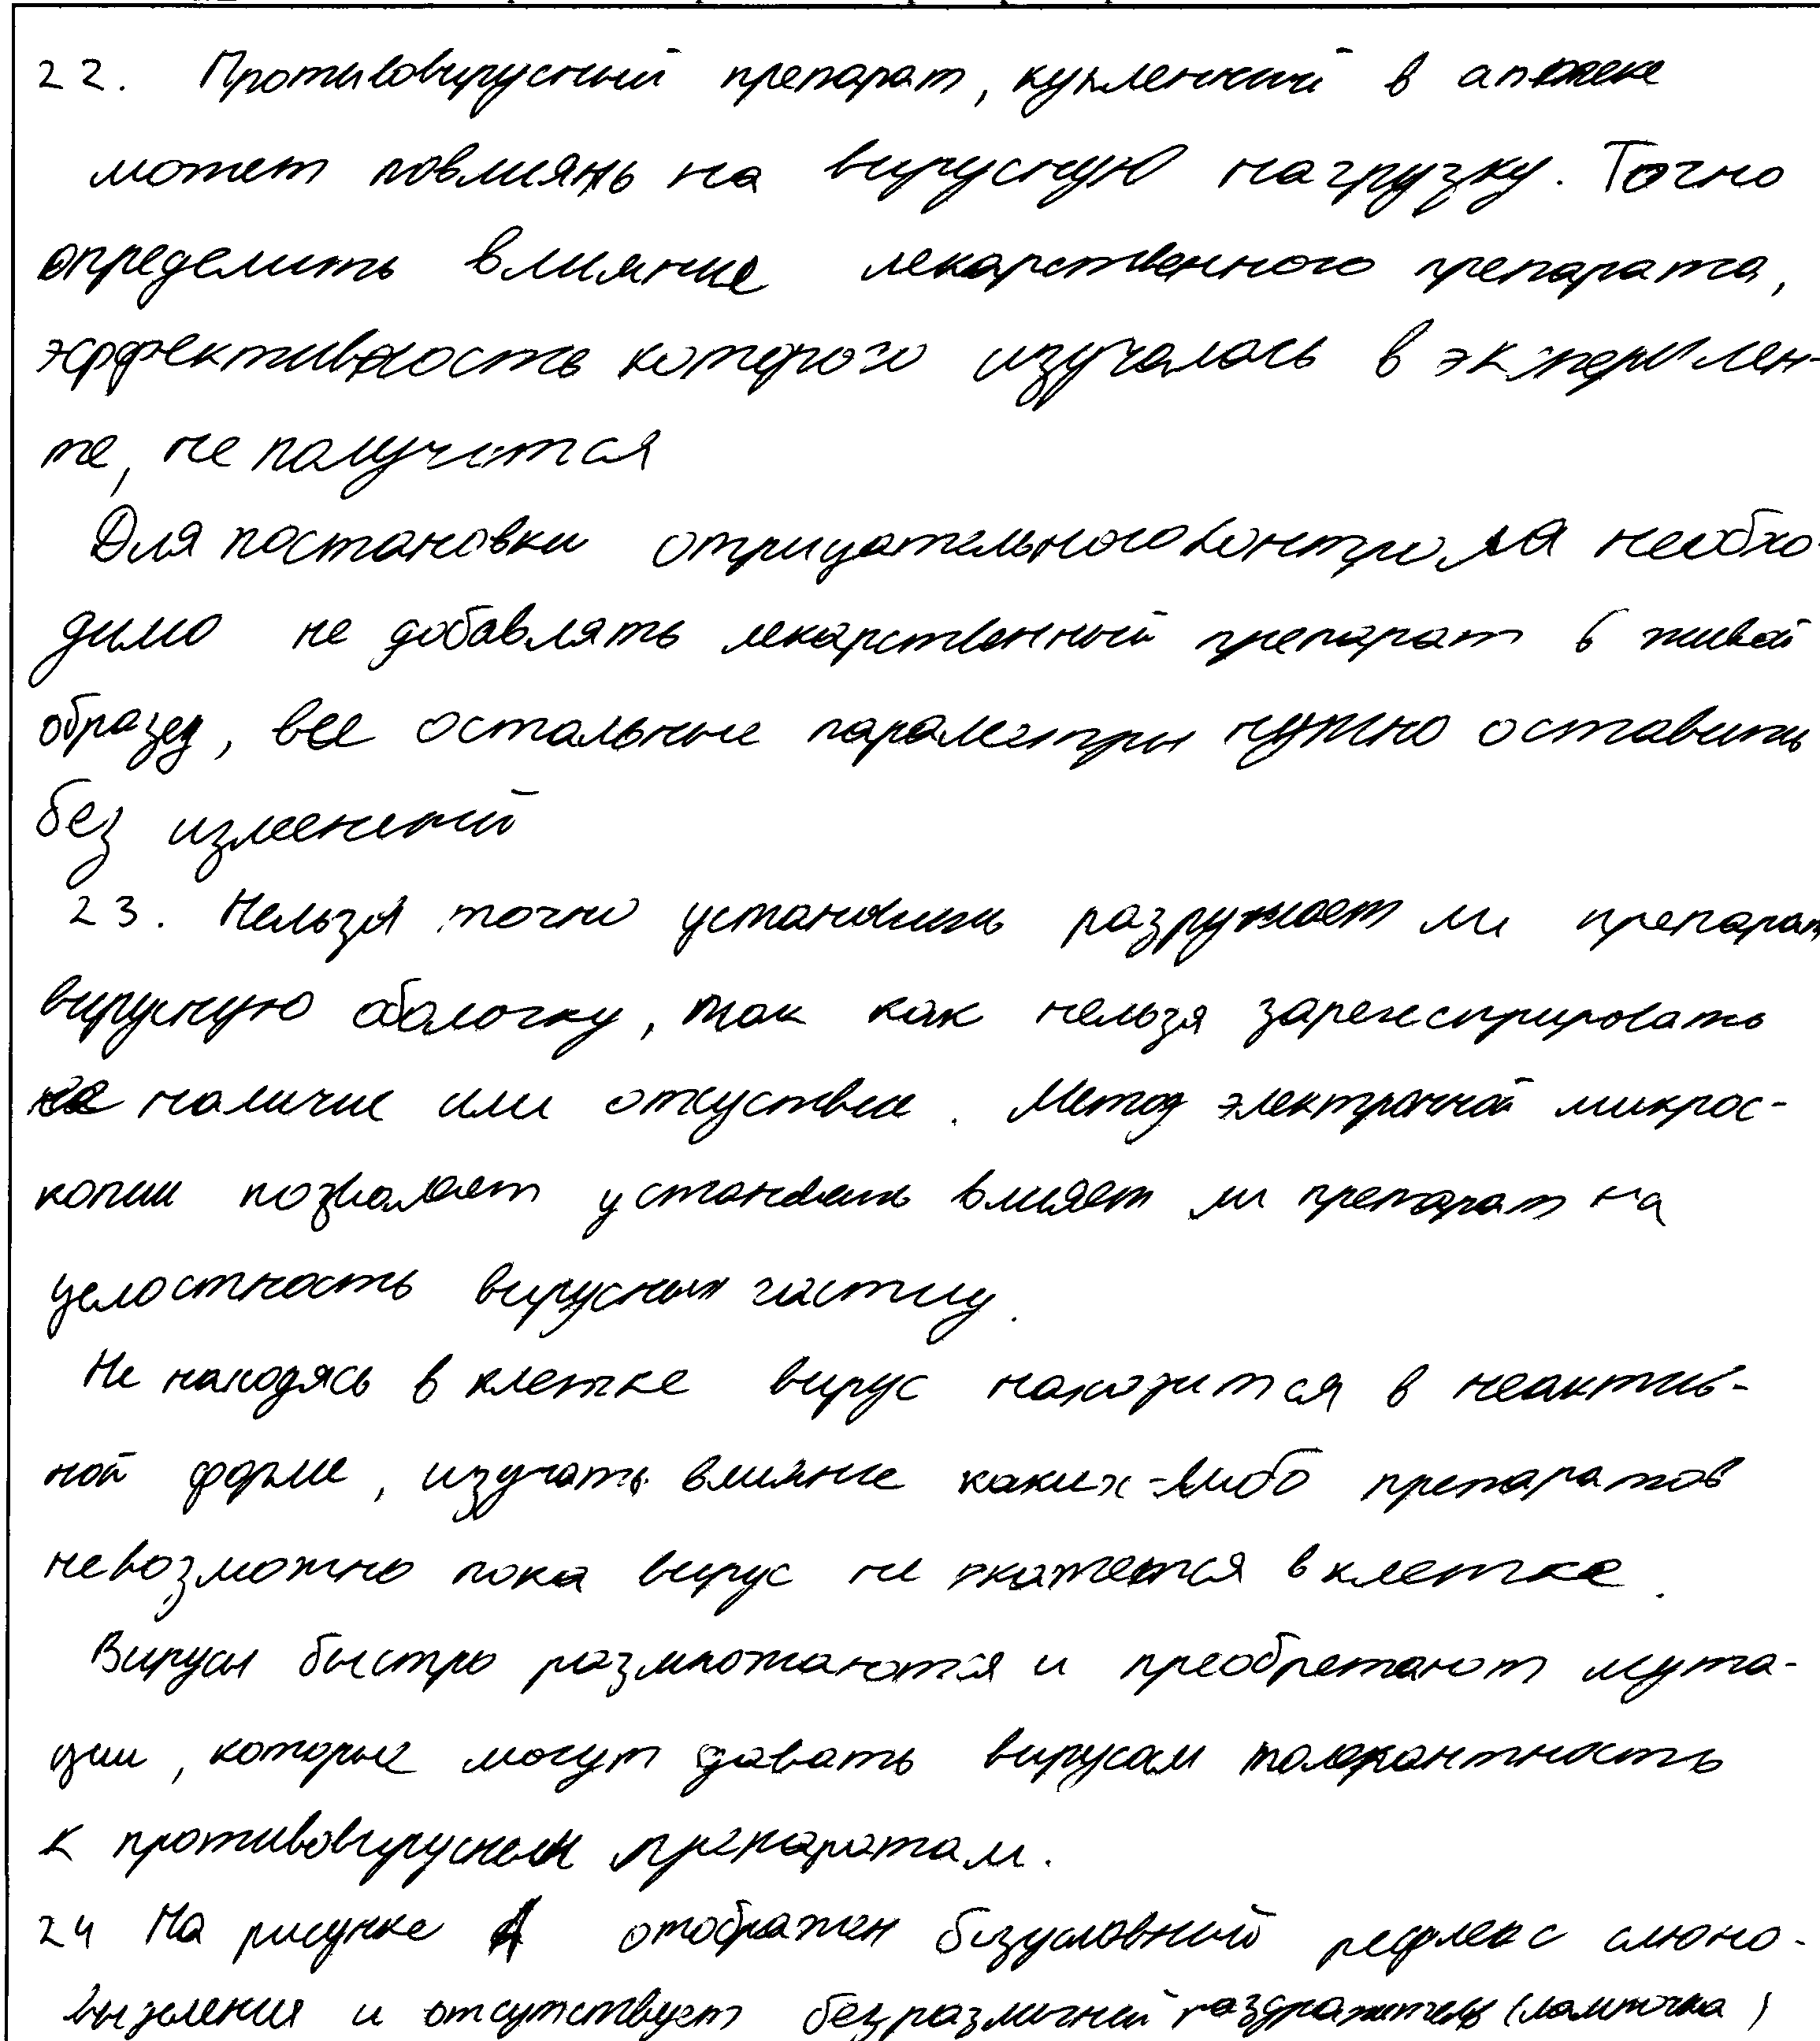 22. Противовирусный препарат, купленный в аптеке
может повлиять на вирусную нагрузку. Точно
определить влияние лекарственного препарата,
эффективность которого изучалась в эксперимен-
те, не получится
Для постановки отрицательного контроля необхо-
димо не добавлять лекарственный препарат в живой
образец, все остальные параметры нужно оставить
без изменений
23. Нельзя точно установить разрушает ли препарат
вирусную оболочку, так как нельзя зарегистрировать
её наличие или отсуствие. Метод электронной микрос-
копии позволяет установить влияет ли препарат на
целостность вирусных частиц.
Не находясь в клетке вирус находится в неактив-
ной форме, изучать влияние каких-либо препаратов
невозможно пока вирус не окажется в клетке.
Вирусы быстро размножаются и преобретают мута-
ции, которые могут давать вирусам толерантность
к противовирусным препаратам.
24 На рисунке А отображен безусловный рефлекс слюно-
выделения и отсутствует безразличный раздражитель (лампочка)